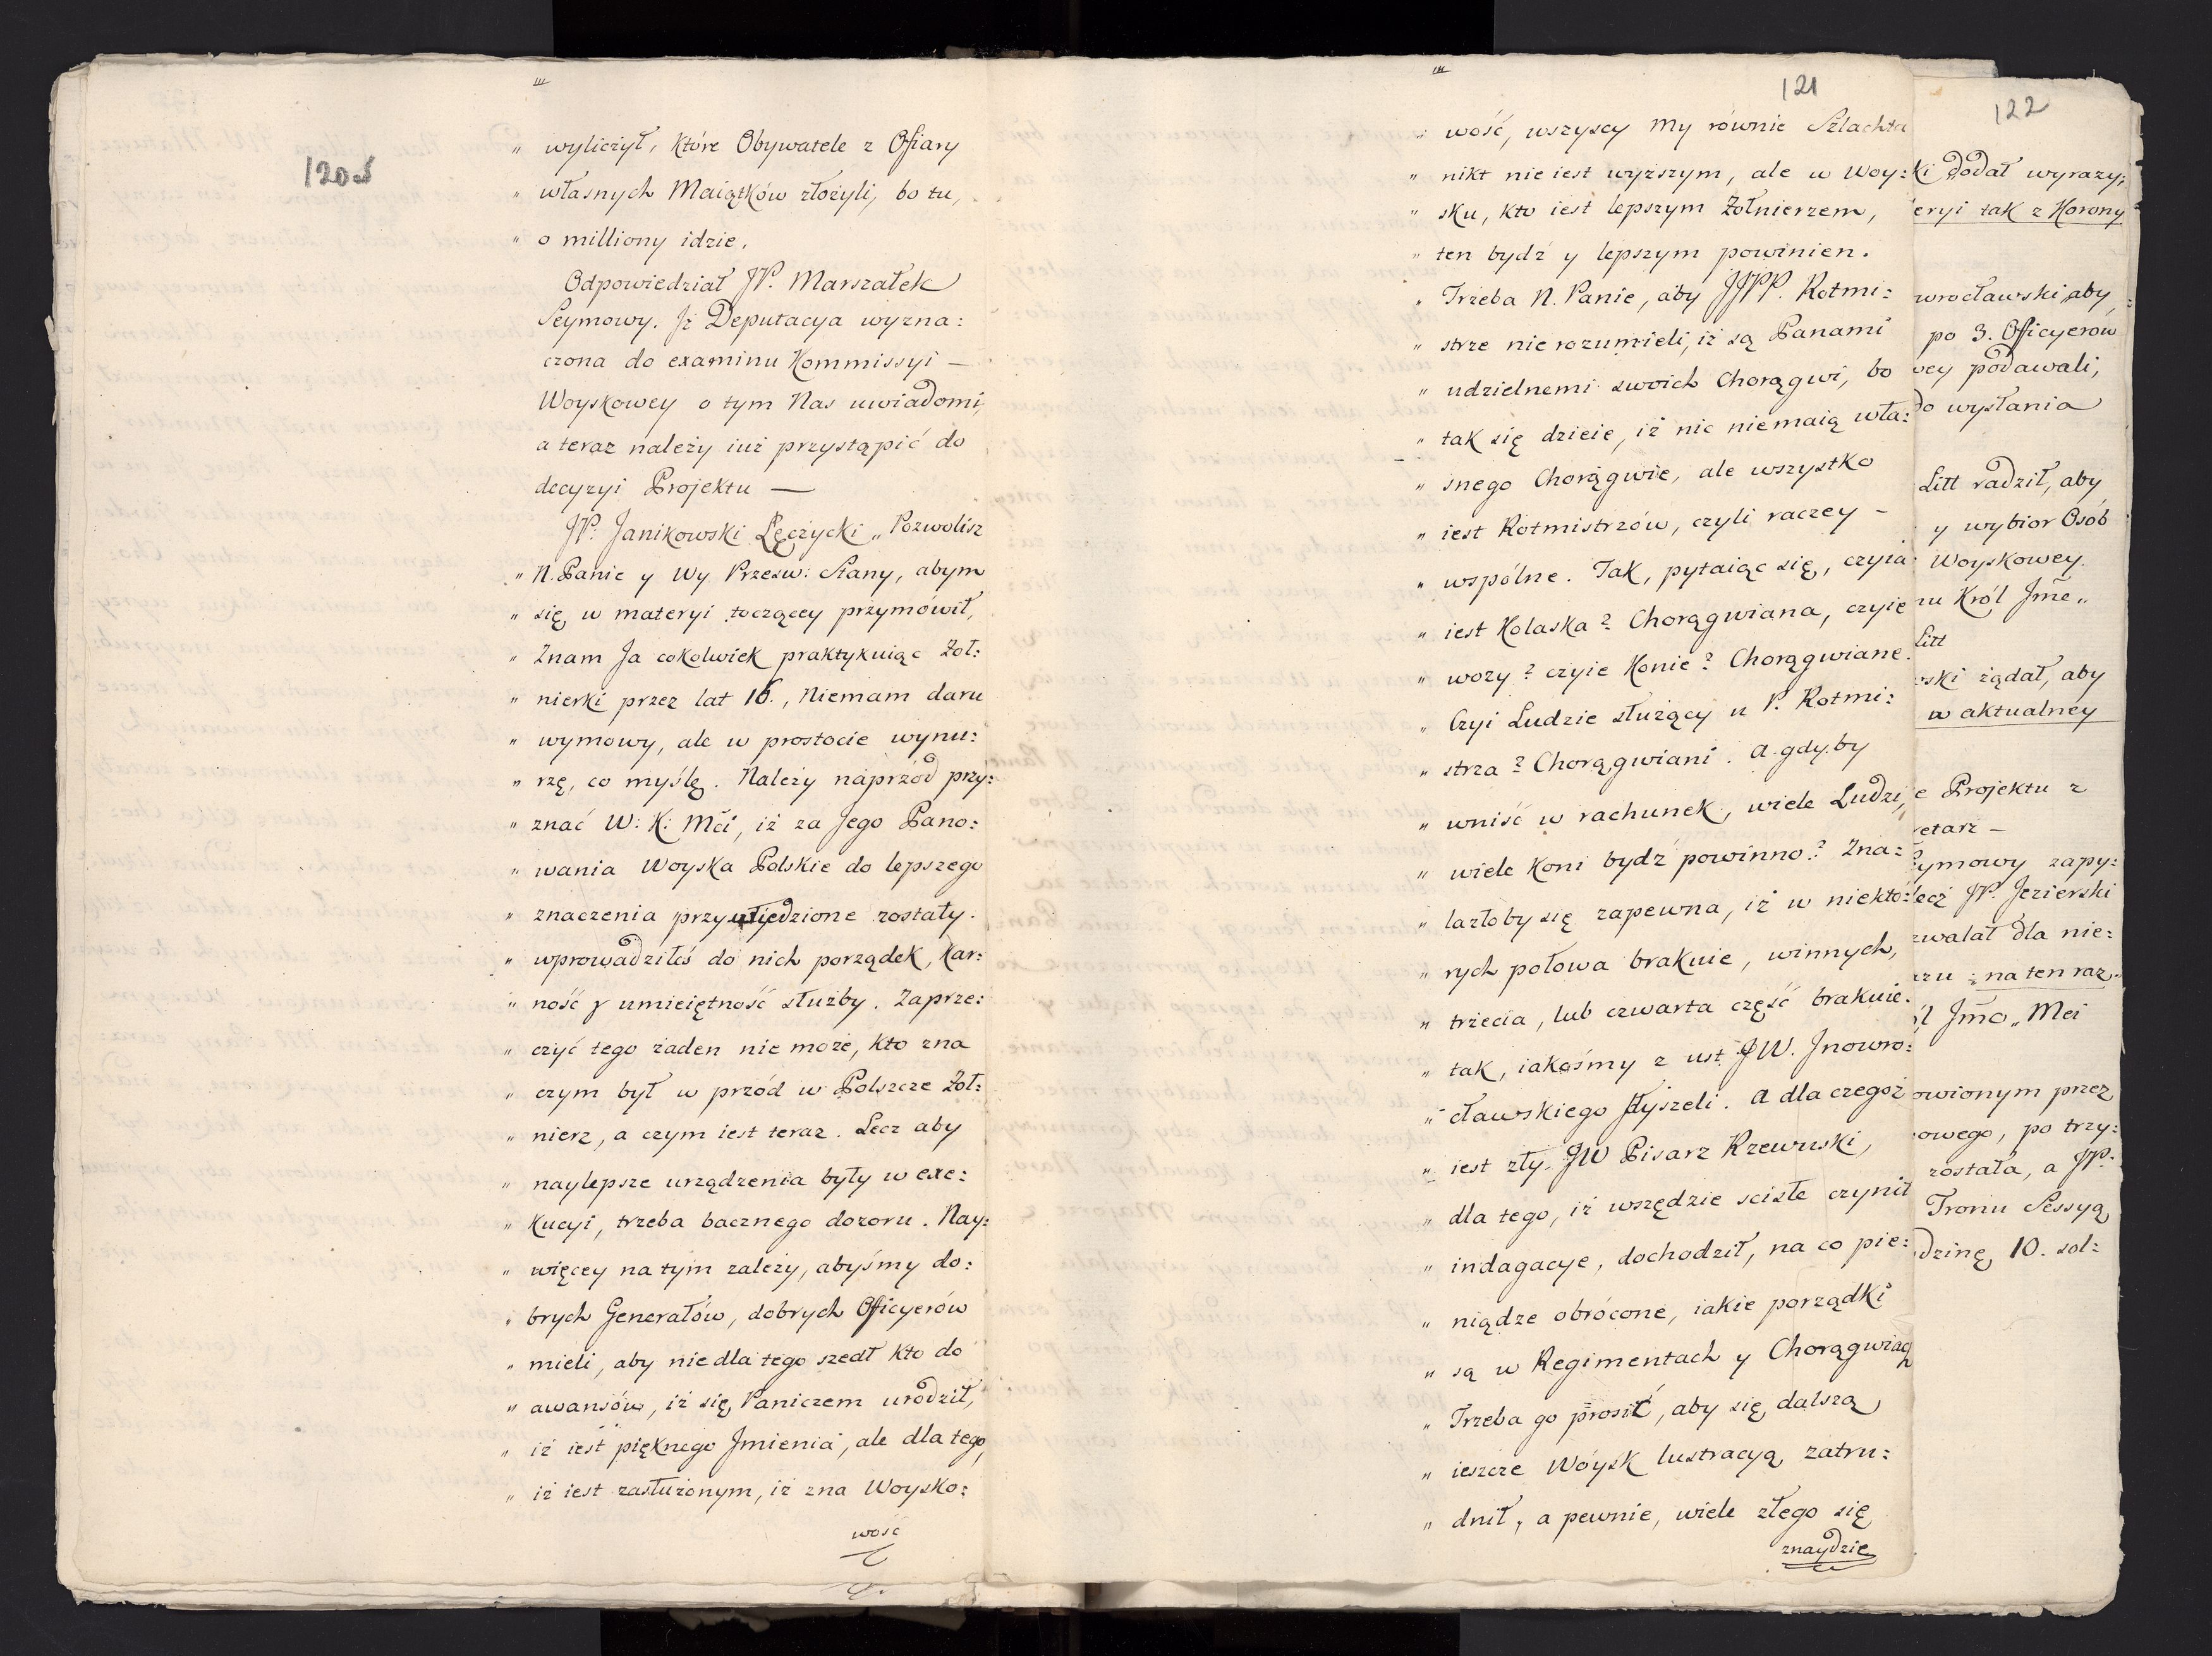 120v
„ wyliczył, które Obywatele z Ofiary
„ własnych Maiątków złożyli, bo tu,
„ o milliony idzie.
Odpowiedział JP. Marszałek
Seymowy. Jż Deputacya wyzna:
czona do examinu Kommissyi —
Woyskowey o tym Nas uwiadomi,
a teraz należy iuż przystąpić do
decyzyi Projektu —
JP. Janikowski Łęczycki „ Pozwolisz
„ N. Panie y Wy Przesw: Stany, abym
„ się w materyi toczącey przymówił,
„ Znam Ja cokolwiek praktykuiąc Żoł:
„ nierki przez lat 16., Niemam daru
„ wymowy, ale w prostocie wynu:
„ rzę, co myślę. Należy naprzód przy:
„ znać W: K: Mci, iż za Jego Pano:
„ wania Woyska Polskie do lepszego
„ znaczenia przywiedzione zostały.
„ wprowadziłeś do nich porządek, kar:
„ ność y umieiętność służby. Zaprze:
„ czyć tego żaden nie może, kto zna
„ czym był w przód w Polszcze Żoł:
„ nierz, a czym iest teraz. Lecz aby
„ naylepsze urządzenia były w exe:
„ kucyi, trzeba bacznego dozoru. Nay:
„ więcey na tym zależy, abyśmy do:
„ brych Generałów, dobrych Oficyerów
„ mieli, aby nie dla tego szedł kto do
„ awansów, iż się Paniczem urodził,
„ iż iest pięknego Jmienia, ale dla tego,
„ iż iest zasłużonym, iż zna Woysko:
wość
121
„ wość, wszyscy my równie Szlachta
„ nikt nie iest wyższym, ale w Woy:
„ sku, kto iest lepszym Żołnierzem,
„ ten bydź y lepszym powinien.
„ Trzeba N. Panie, aby JJPP. Rotmi:
„ strze nie rozumieli, iż są Panami
„ udzielnemi swoich Chorągwi, bo
„ tak się dzieie, iż nic niemaią wła:
„ snego Chorągwie, ale wszystko
„ iest Rotmistrzów, czyli raczey —
„ wspólne. Tak, pytaiąc się, czyia
„ iest Kolaska? Chorągwiana, czyie
„ wozy? czyie Konie? Chorągwiane.
„ Czyi Ludzie służący u P. Rotmi:
„ strza? Chorągwiani. A gdyby
„ wniść w rachunek, wiele Ludzi,
„ wiele Koni bydź powinno? Zna:
„ lazłoby się zapewna, iż w niektó:
„ rych połowa brakuie, winnych,
„ trzecia, lub czwarta część brakuie.
„ tak, iakośmy z ust JW. Jnowro:
„ cławskiego słyszeli. A dla czegoż
„ iest zły JW Pisarz Rzewuski,
„ dla tego, iż wszędzie scisłe czynił
„ indagacye, dochodził, na co pie:
„ niądze obrócone, iakie porządki
„ są w Regimentach y Chorągwiaq
„ Trzeba go prosić, aby się dalszą
„ ieszcze Woysk lustracyą zatru:
„ dnił, a pewnie, wiele złego się
znaydzie
122
ki dodał wyrazy:
eryi tak z Korony
wrocławski, aby
po 3. Officyerów
wey podawali,
do wysłania
Litt radził, aby
y wybior Osób
Woyskowey.
nu Król Jme „
Litt
wski żądał, aby
w aktualney
e Projektu z
retarz —
ymowy zapy:
lecz JP. Jezierski
zwalał dla nie:
azu : na ten raz.
l Jmo „ Mci
owionym przez
owego, po trzy:
została, a JP.
Tronu Sessyą
dzinę 10. sol: